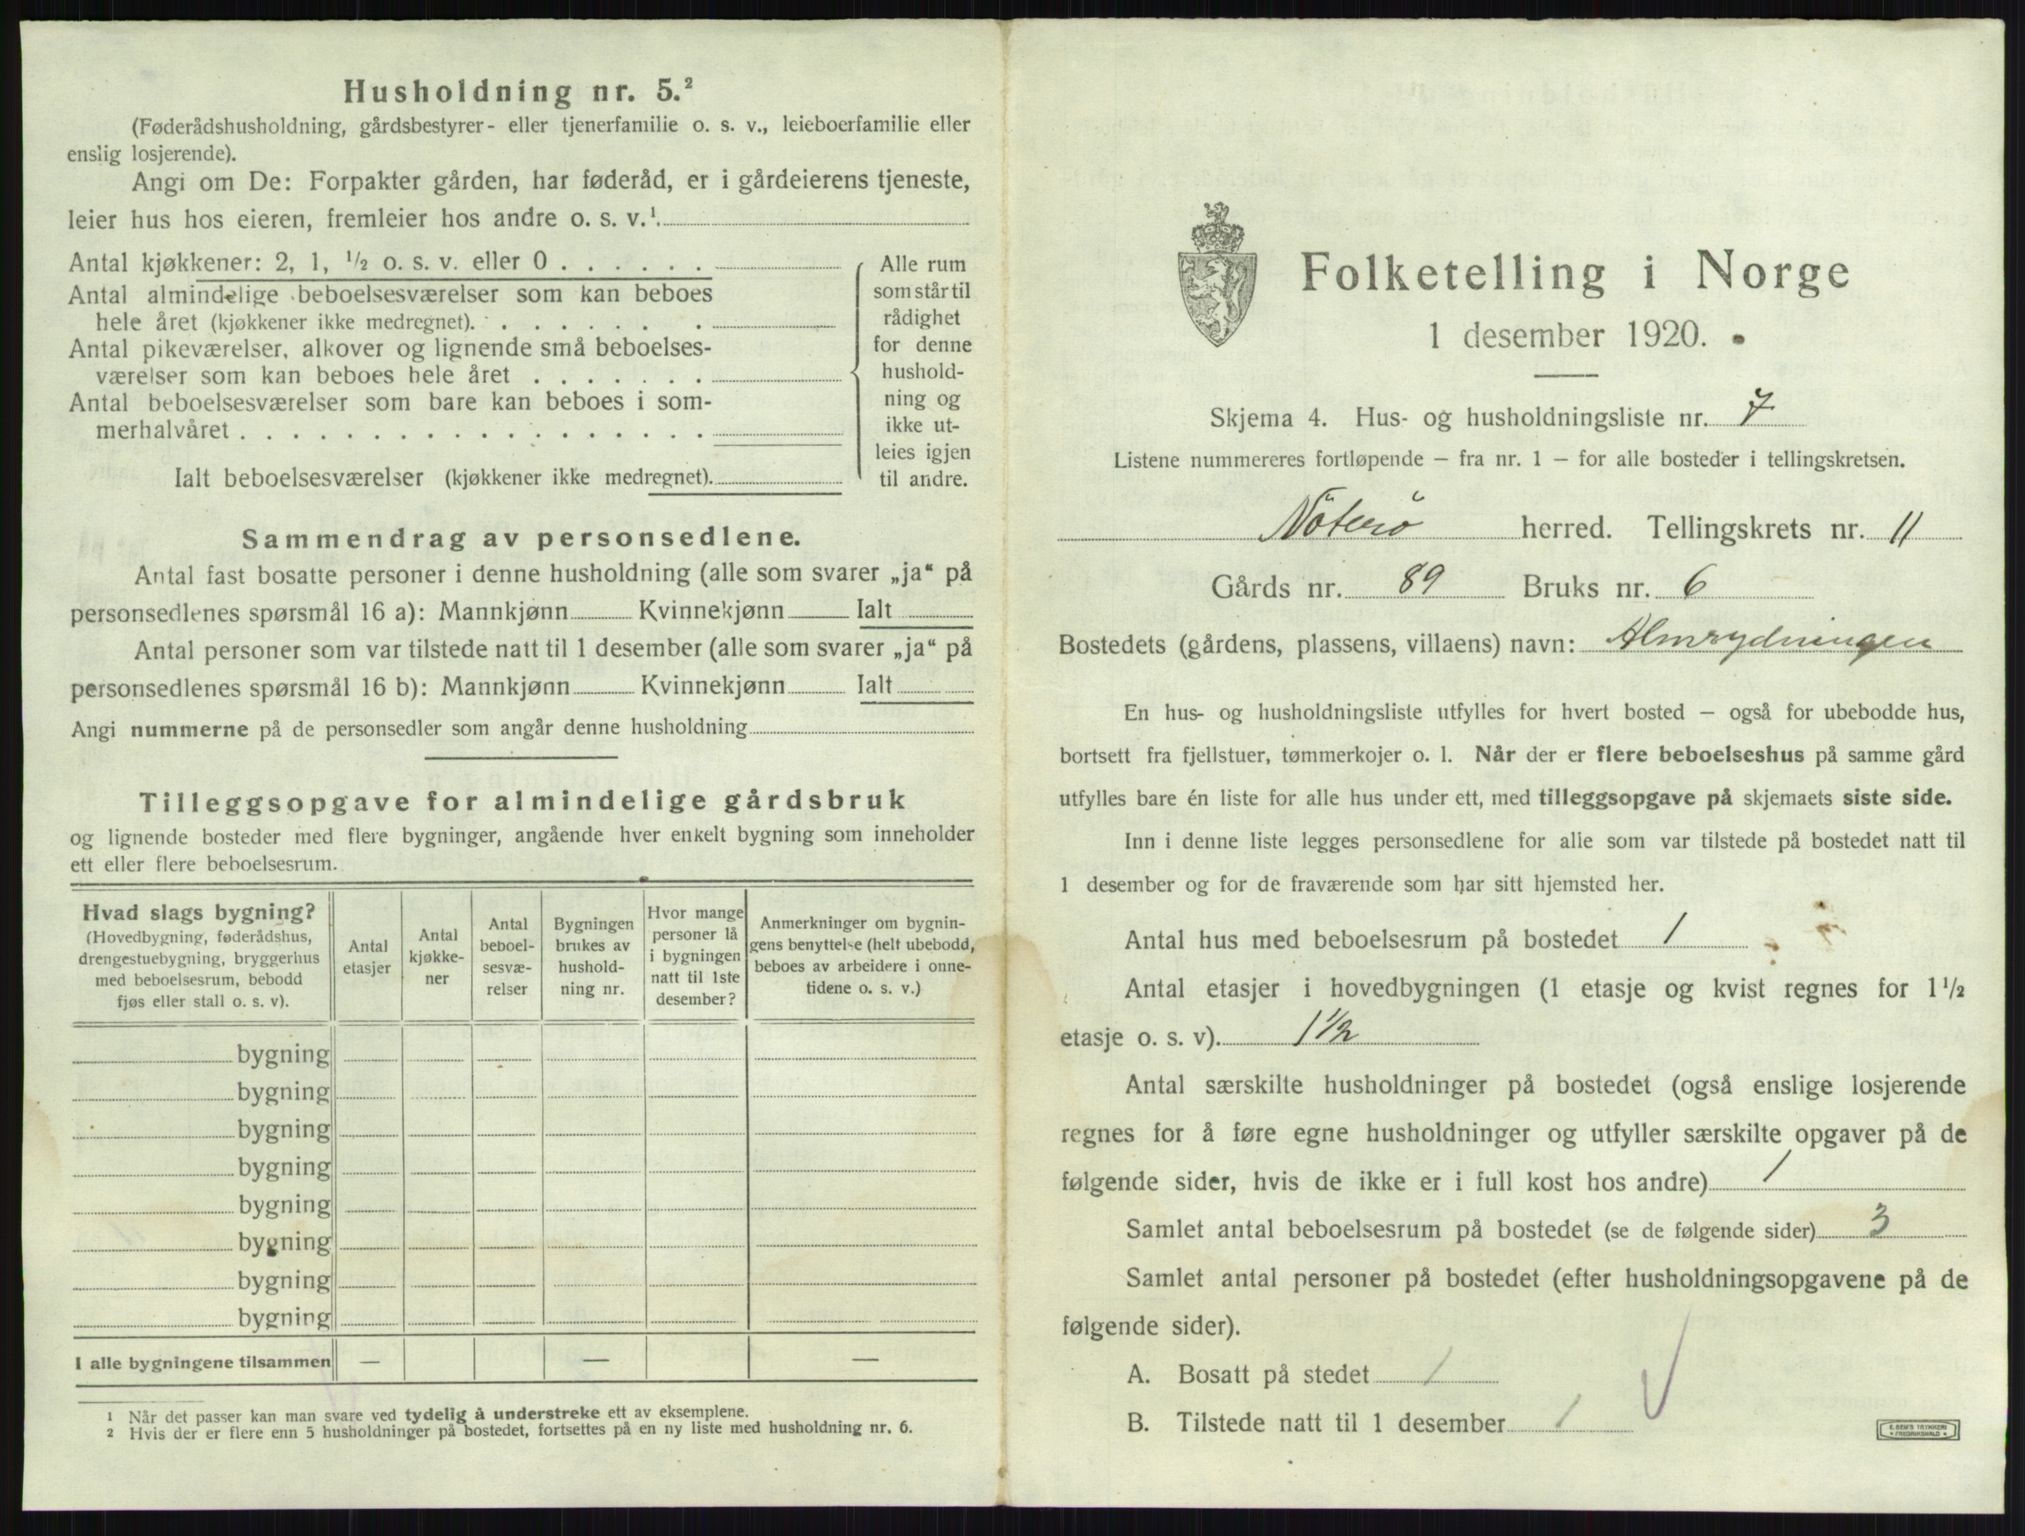 Husholdning nr. 5.²
(Føderådshusholdning, gårdsbestyrer- eller tjenerfamilie o. s. v., leieboerfamilie eller
enslig losjerende).
Angi om De: Forpakter gården, har føderåd, er i gårdeierens tjeneste,
leier hus hos eieren, fremleier hos andre o. s. v.¹
Antal kjøkkener: 2, 1, ½ o. s. v. eller 0 . . . . . .
Antal almindelige beboelsesværelser som kan beboes
hele året (kjøkkener ikke medregnet). . . . . . . .
Antal pikeværelser, alkover og lignende små beboelses-
værelser som kan beboes hele året . . . . . . .
Antal beboelsesværelser som bare kan beboes i som-
merhalvåret . . . . . . . . . . . . . . . . . .
Ialt beboelsesværelser (kjøkkener ikke medregnet).
Alle rum
som står til
rådighet
for denne
hushold-
ning og
ikke ut-
leies igjen
til andre.
Sammendrag av personsedlene.
Antal fast bosatte personer i denne husholdning (alle som svarer „ja“ på
personsedlenes spørsmål 16 a): Mannkjønn Kvinnekjønn Ialt
Antal personer som var tilstede natt til 1 desember (alle som svarer „ja“ på
personsedlenes spørsmål 16 b): Mannkjønn Kvinnekjønn Ialt
Angi nummerne på de personsedler som angår denne husholdning
Tilleggsopgave for almindelige gårdsbruk
og lignende bosteder med flere bygninger, angående hver enkelt bygning som inneholder
ett eller flere beboelsesrum.
Hvad slags bygning?
(Hovedbygning, føderådshus,
drengestuebygning, bryggerhus
med beboelsesrum, bebodd
fjøs eller stall o. s. v).
Antal
etasjer
Antal
kjøkke-
ner
Antal
beboel-
sesvæ-
relser
Bygningen
brukes av
hushold-
ning nr.
Hvor mange
personer lå
i bygningen
natt til 1ste
desember?
Anmerkninger om bygnin-
gens benyttelse (helt ubebodd,
beboes av arbeidere i onne-
tidene o. s. v.)
bygning
bygning
bygning
bygning
bygning
bygning
bygning
bygning
I alle bygningene tilsammen — — —
1 Når det passer kan man svare ved tydelig å understreke ett av eksemplene.
2 Hvis der er flere enn 5 husholdninger på bostedet, fortsettes på en ny liste med husholdning nr. 6.
Folketelling i Norge
1 desember 1920.
Skjema 4. Hus- og husholdningsliste nr. 7
Listene nummereres fortløpende – fra nr. 1 – for alle bosteder i tellingskretsen.
Nöterö herred. Tellingskrets nr. 11
Gårds nr. 89 Bruks nr. 6
Bostedets (gårdens, plassens, villaens) navn: Almrydningen
En hus- og husholdningsliste utfylles for hvert bosted – også for ubebodde hus,
bortsett fra fjellstuer, tømmerkojer o. l. Når der er flere beboelseshus på samme gård
utfylles bare én liste for alle hus under ett, med tilleggsopgave på skjemaets siste side.
Inn i denne liste legges personsedlene for alle som var tilstede på bostedet natt til
1 desember og for de fraværende som har sitt hjemsted her.
Antal hus med beboelsesrum på bostedet 1
Antal etasjer i hovedbygningen (1 etasje og kvist regnes for 1½
etasje o. s. v). 1½
Antal særskilte husholdninger på bostedet (også enslige losjerende
regnes for å føre egne husholdninger og utfyller særskilte opgaver på de
følgende sider, hvis de ikke er i full kost hos andre) 1
Samlet antal beboelsesrum på bostedet (se de følgende sider) 3
Samlet antal personer på bostedet (efter husholdningsopgavene på de
følgende sider).
A. Bosatt på stedet 1
B. Tilstede natt til 1 desember 1
E. SEM'S TRYKKERI
FREDRIKSHALD